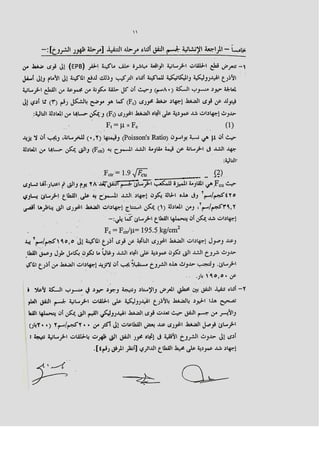 ١١
خامساً – المراجعة الإنشائية لجسم النفق أثناء مرحلة التنفيذ [مرحلة ظهور الشروخ] :-
١- تتعرض قطع الحلقات الخرسانية الواقعة مباشرة خلف ماكينة الحفر (EPB) إلى قوى ضغط من
الأذرع الهيدروليكية والميكانيكية للماكينة أثناء التركيب وذلك لدفع الماكينة إلى الأمام وإلى أسفل
لمعالجة حيود منسوب السكة (٨٠سم) وحيث أن كل حلقة مكونة من مجموعة من القطع الخرسانية
فيتولد عن قوى الضغط إجهاد ضغط محورى (F) كما هو موضح بالشكل رقم (٣) مما أدى إلى
حدوث إجهادات شد عمودية على اتجاه الضغط المحورى (F) ويمكن حسابها من المعادلة التالية:
(1) Ft = μ * Fc
حيث أن μ هى نسبة بواسون (Poisson's Ratio) وقيمتها (٠,٢) للخرسانة، ويجب أن لا يزيد
جهد الشد فى الخرسانة عن قيمة مقاومة الشد المسموح به (Fctr) والتى يمكن حسابها من المعادلة
التالية:
Fctr = 1.9 √Fcu (2)
حيث Fcu هى المقاومة المميزة للمكعب الخرسانى لجسم النفق بعد ٢٨ يوم والتى تم اعتبار أنها تساوى
٤٢٥كجم/سم٢ وفى هذه الحالة يكون إجهاد الشد المسموح به على القطاع الخرسانى يساوى
٣٩,٢كجم/سم٢، ومن المعادلة (1) يمكن استنتاج إجهادات الضغط المحورى التى يناظرها أقصى
إجهادات شد يمكن أن يتحملها القطاع الخرسانى كما يلى:-
Fc = Fctr/μ= 195.5 kg/cm2
وعند وصول إجهادات الضغط المحورى الناتجة عن قوى أذرع الماكينة إلى ١٩٥,٥كجم/سم٢ يبدأ
حدوث شروخ الشد التى تكون عمودية على اتجاه الضغط وغالباً ما تكون بكامل طول وعمق القطاع
الخرسانى. ولتجنب حدوث هذه الشروخ مستقبلاً يجب أن لا تزيد إجهادات الضغط من أذرع الماكينة
عن ١٩٥,٥٠ بار.
٢- أثناء تنفيذ النفق بين محطتى المعرض والإستاد ونتيجة وجود حيود فى منسوب السكة لأعلا فقد تم
تصحيح هذا الحيود بالضغط بالأذرع الهيدروليكية على الحلقات الخرسانية لجسم النفق العلوى
والأيسر من جسم النفق حيث تعدت قوى الضغط الهيدروليكى القيم التى يمكن أن يتحملها القطاع
الخرسانى فوصل الضغط المحورى عند بعض القطاعات إلى أكثر من ٢٠٠كجم/سم٢ (٢٠٠بار)
أدى إلى حدوث الشروخ الأفقية فى إتجاه محور النفق التى ظهرت بالحلقات الخرسانية نتيجة
إجهاد شد عمودية على محيط القطاع الدائرى [أنظر المرفق رقم٤].